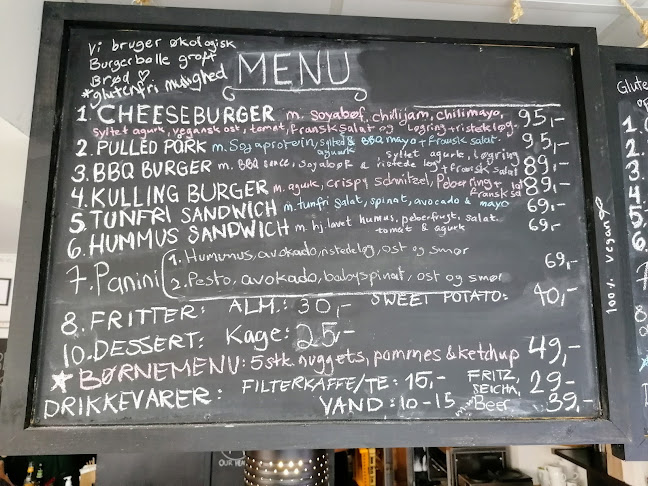 Vi bruger økologisk
Burgerbolle groft
Brød ♡
*glutenfri mulighed
MENU
1. CHEESEBURGER m. soyabøf, chillijam, chilimayo, 95,-
syltet agurk, vegansk ost, tomat, fransk salat og løgring + ristede løg.
2. PULLED PORK m. Soyaprotein, sylted agurk & BBQ mayo + fransk salat. 95,-
3. BBQ BURGER m. BBQ sauce, soyabøf & ristede løg, syltet agurk, løgring + fransk salat 89,-
4. KULLING BURGER m. agurk, crispy schnitzel, Peberring + fransk sa 89,-
5. TUNFRI SANDWICH m. tunfri salat, spinat, avocado & mayo 69,-
6. HUMMUS SANDWICH m. hj. lavet humus, peberfrugt, salat. tomat & agurk 69,-
7. Panini
1. Hummus, avokado, ristedeløg, ost og smør
2. Pesto, avokado, babyspinat, ost og smør
69,-
8. FRITTER: ALM.: 30,- SWEET POTATO: 40,-
10. DESSERT: Kage: 25,-
★ BØRNEMENU: 5 stk. nuggets, pommes & ketchup 49,-
DRIKKEVARER: FILTERKAFFE/TE: 15,- FRITZ, SEICHA, 29-
VAND: 10-15 Beer 39,-
100% vegan
Glute
1.
2
3.
4
5
6.
7
8
OUR